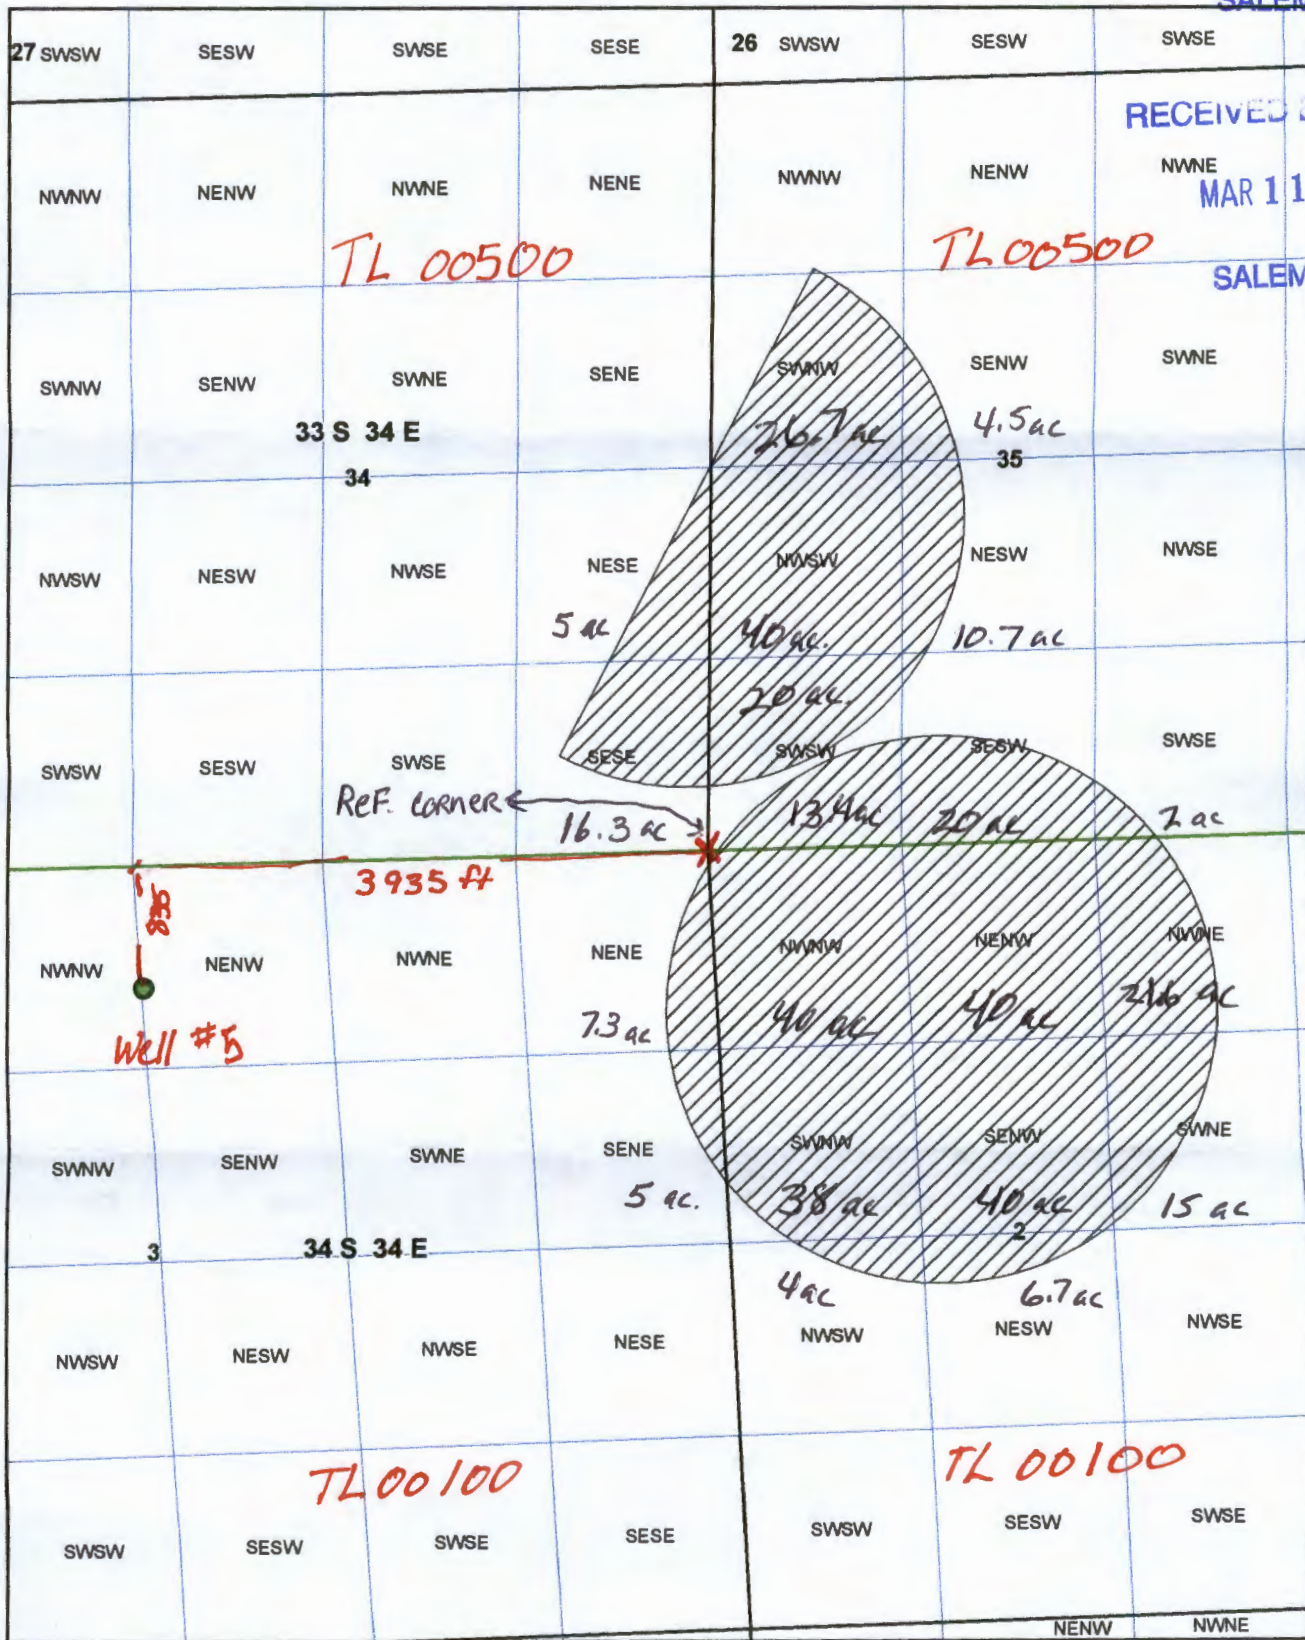 SALEM
27 SWSW SESW SWSE SESE 26 SWSW SESW SWSE
RECEIVED
NWNW NENW NWNE NENE NWNW NENW NWNE
MAR 11
TL 00500 TL 00500
SALEM
SWNW SENW SWNE SENE SWNW SENW SWNE
26.7 ac 4.5 ac
33 S 34 E
34 35
NWSW NESW NWSE NESE NWSW NESW NWSE
5 ac 40 ac. 10.7 ac
20 ac.
SWSW SESW SWSE SESE SWSW SESW SWSE
REF. CORNER
16.3 ac 13.4 ac 20 ac 2 ac
3935 ft
NWNW NENW NWNE NENE NWNW NENW NWNE
7.3 ac 40 ac 40 ac 21.6 ac
Well #5
SWNW SENW SWNE SENE SWNW SENW SWNE
5 ac. 38 ac 40 ac 15 ac
3 34 S 34 E 2
4 ac 6.7 ac
NWSW NESW NWSE NESE NWSW NESW NWSE
TL 00100 TL 00100
SWSW SESW SWSE SESE SWSW SESW SWSE
NENW NWNE